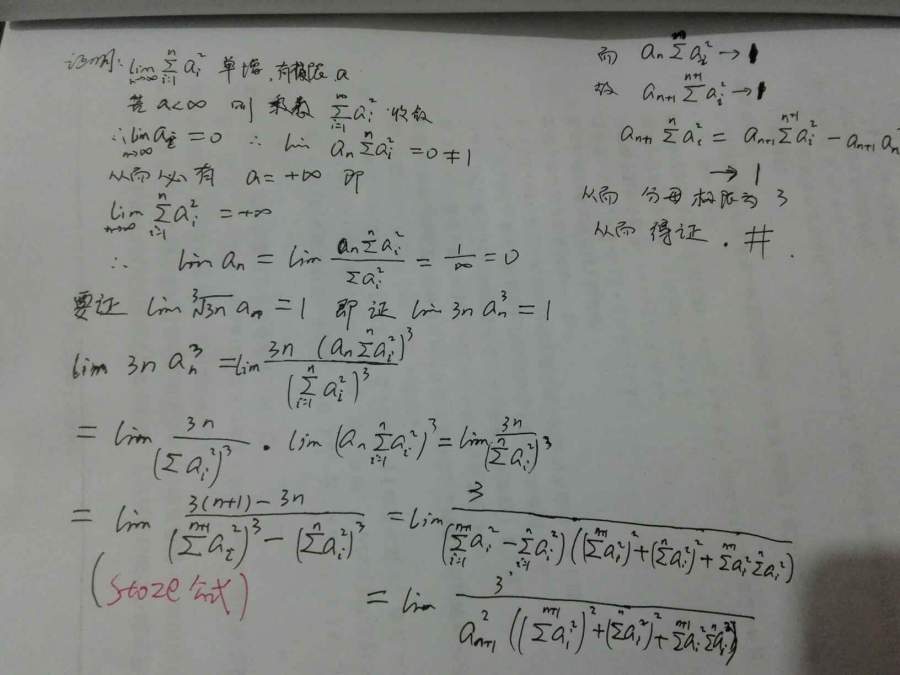 证明: lim_{n→∞} Σ_{i=1}^{n} a_i^2 单增, 有极限 a
若 a<∞ 则 级数 Σ_{i=1}^{∞} a_i^2 收敛
∴ lim_{n→∞} a_i = 0 ∴ lim a_n Σ^{n} a_i^2 = 0 ≠ 1
从而必有 a = +∞ 即
lim_{n→∞} Σ_{i=1}^{n} a_i^2 = +∞
∴ lim a_n = lim (a_n Σ^{n} a_i^2)/(Σ a_i^2) = 1/∞ = 0
要证 lim ∛3n a_n = 1 即证 lim 3n a_n^3 = 1
lim 3n a_n^3 = lim (3n (a_n Σ^{n} a_i^2)^3)/((Σ_{i=1}^{n} a_i^2)^3)
= lim 3n/(Σ a_i^2)^3 · lim (a_n Σ_{i=1}^{n} a_i^2)^3 = lim 3n/(Σ^{n} a_i^2)^3
= lim (3(n+1) - 3n)/((Σ^{n+1} a_i^2)^3 - (Σ^{n} a_i^2)^3) = lim 3/((Σ_{i=1}^{n+1} a_i^2 - Σ_{i=1}^{n} a_i^2)((Σ^{n+1} a_i^2)^2 + (Σ^{n} a_i^2)^2 + Σ^{n+1} a_i^2 Σ^{n} a_i^2))
(Stoze公式)
= lim 3/(a_{n+1}^2 ((Σ^{n+1} a_i^2)^2 + (Σ^{n} a_i^2)^2 + Σ^{n+1} a_i^2 Σ^{n} a_i^2))
而 a_n Σ^{n} a_i^2 → 1
故 a_{n+1} Σ^{n+1} a_i^2 → 1
a_{n+1} Σ^{n} a_i^2 = a_{n+1} Σ^{n+1} a_i^2 - a_{n+1} a_n^2
→ 1
从而 分母极限为 3
从而 得证. #.